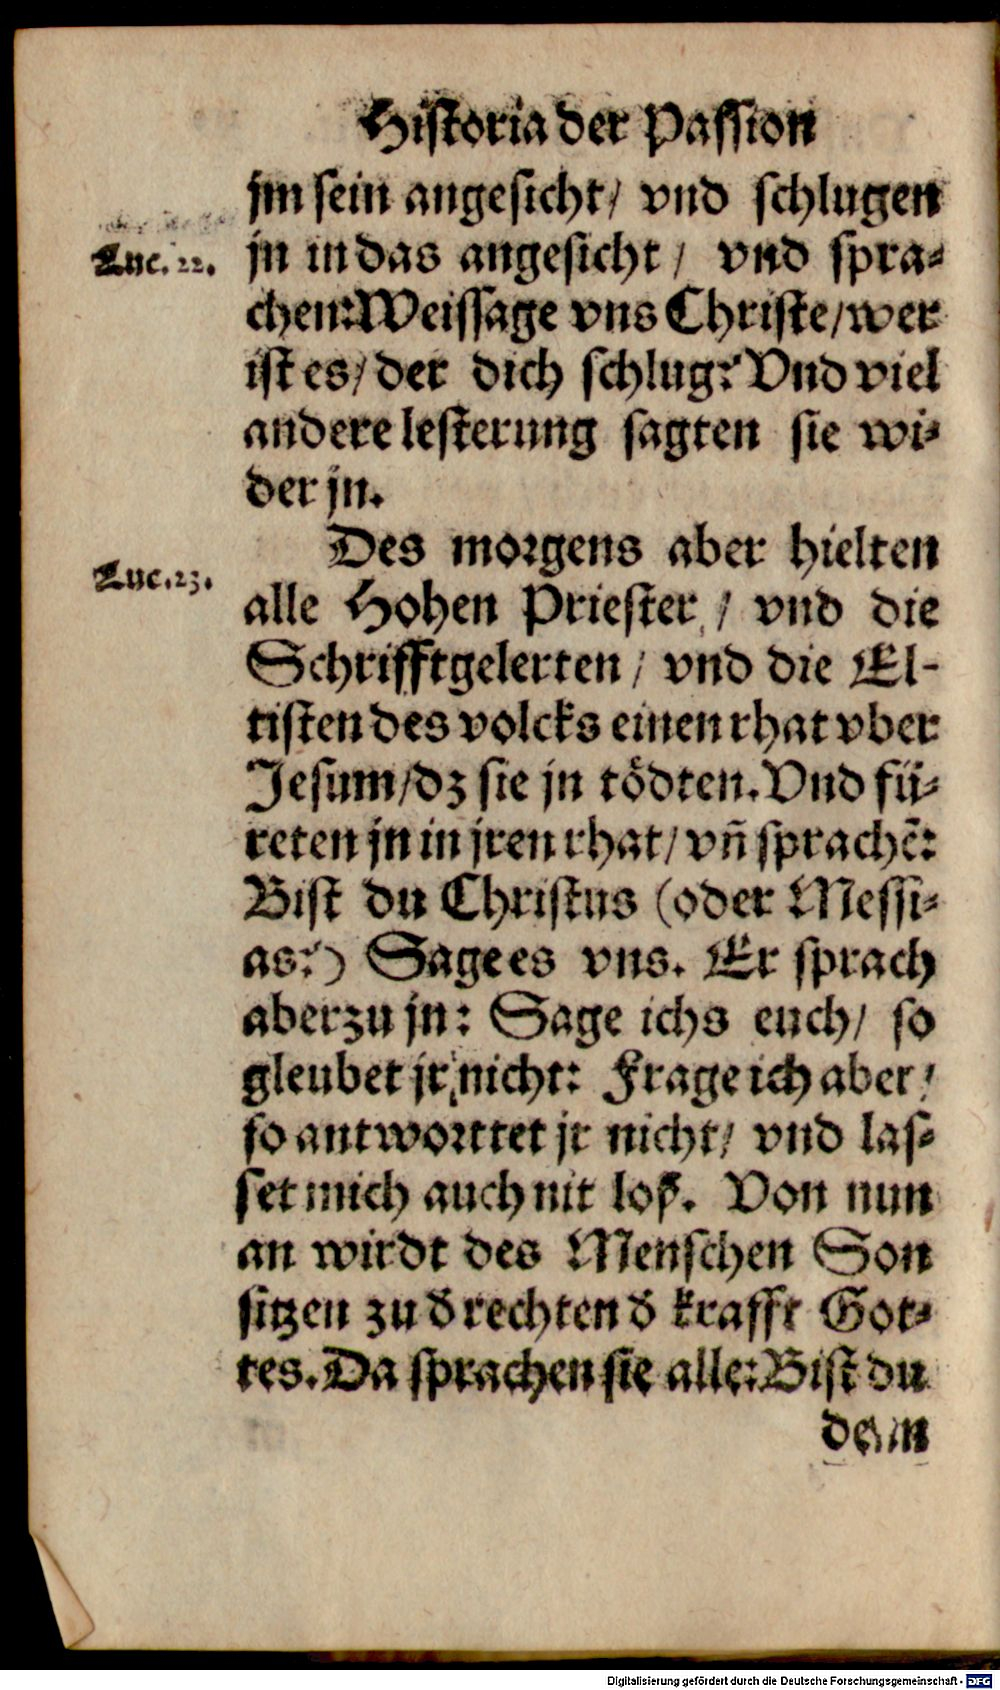 Historia der Passion
jm sein angesicht/ vnd schlugen
Luc. 22.
jn in das angesicht/ vnd spra⸗
chen: Weissage vns Christe/ wer
ist es/ der dich schlug? Vnd viel
andere lesterung sagten sie wi⸗
der jn.
Des morgens aber hielten
Luc. 23.
alle Hohen Priester/ vnd die
Schrifftgelerten/ vnd die El-
tisten des volcks einen rhat vber
Jesum/ dz sie jn tödten. Vnd fü⸗
reten jn in jren rhat/ vñ sprachē:
Bist du Christus (oder Messi⸗
as?) Sage es vns. Er sprach
aber zu jn: Sage ichs euch/ so
gleubet jr nicht: Frage ich aber/
so antworttet jr nicht/ vnd las⸗
set mich auch nit loß. Von nun
an wirdt des Menschen Son
sitzen zu d̄ rechten d̄ krafft Got⸗
tes. Da sprachen sie alle: Bist du
denn
Digitalisierung gefördert durch die Deutsche Forschungsgemeinschaft - DFG